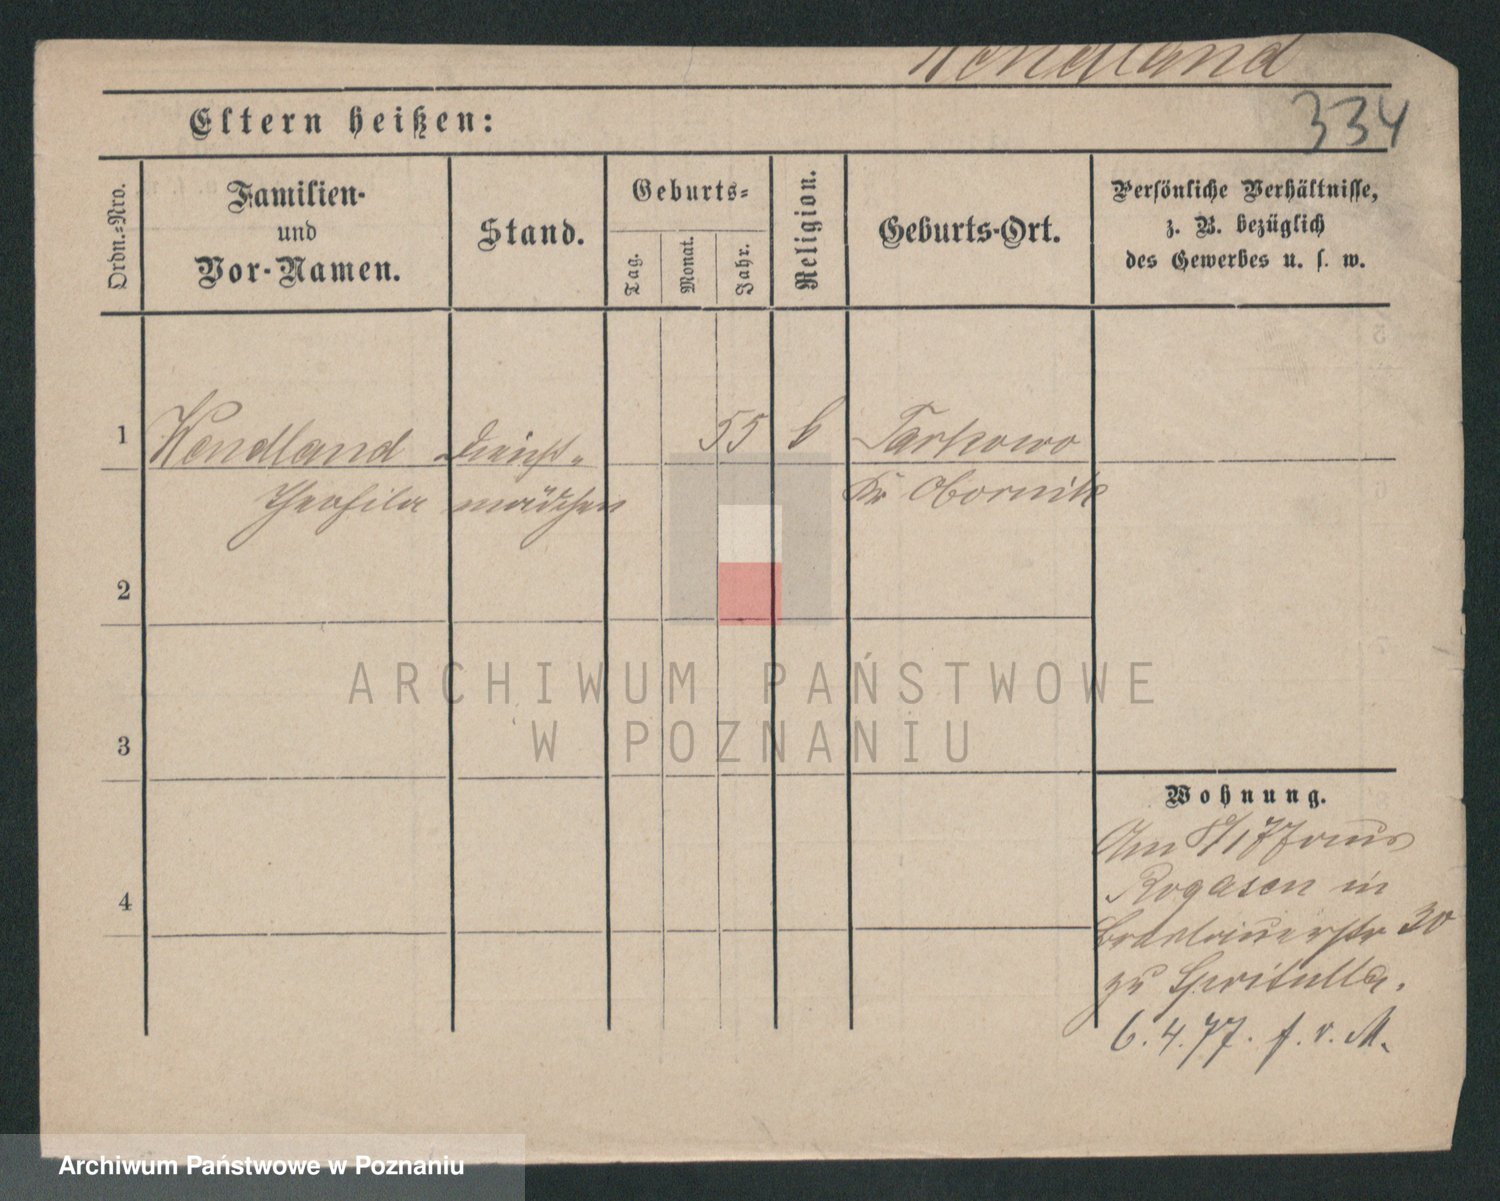 Wendland
334
Eltern heißen:
Ordn.-Nro.
Familien-
und
Vor-Namen.
Stand.
Geburts-
Tag.
Monat.
Jahr.
Religion.
Geburts-Ort.
Persönliche Verhältnisse,
z. B. bezüglich
des Gewerbes u. s. w.
1
Wendland
Dienst-
55
k
Tarkowo
Theofila
mädchen
Kr Obornik
2
3
4
Wohnung.
Am 8/1 77 aus
Rogasen in
Breslauerstr 30
zu
6.4.77. f. v. M.
ARCHIWUM PAŃSTWOWE
W POZNANIU
Archiwum Państwowe w Poznaniu